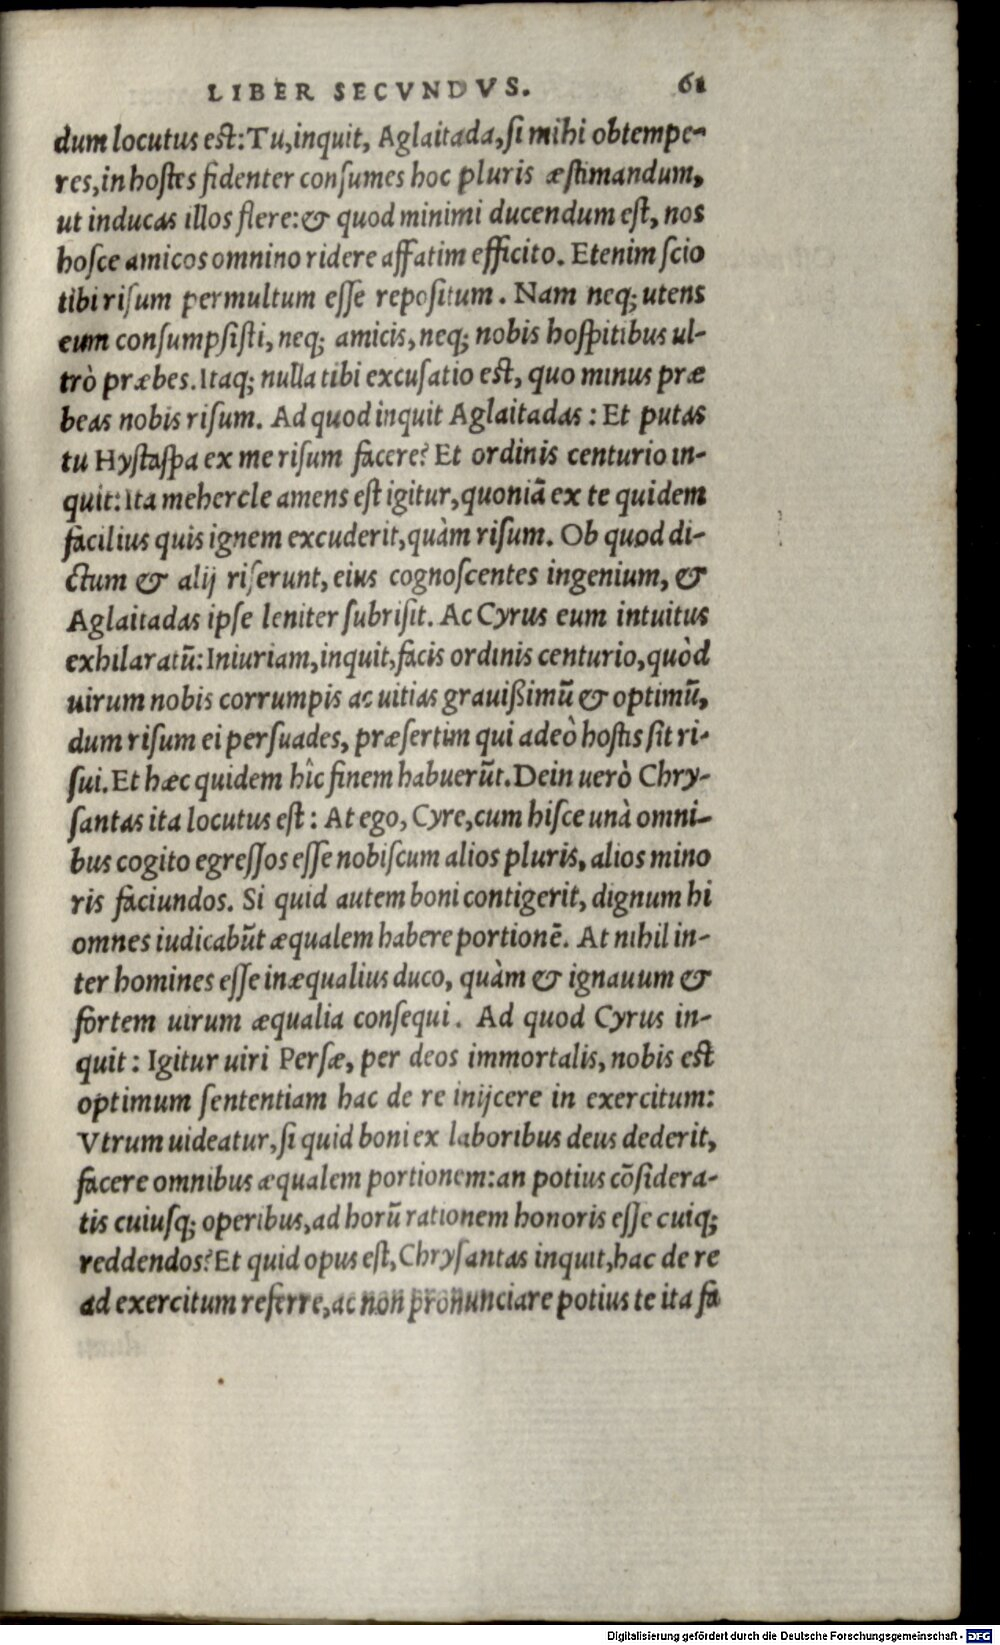 LIBER SECVNDVS. 61
dum locutus est: Tu, inquit, Aglaitada, si mihi obtempe-
res, in hostes fidenter consumes hoc pluris æstimandum,
ut inducas illos flere: & quod minimi ducendum est, nos
hosce amicos omnino ridere affatim efficito. Etenim scio
tibi risum permultum esse repositum. Nam neq; utens
eum consumpsisti, neq; amicis, neq; nobis hospitibus ul-
trò præbes. Itaq; nulla tibi excusatio est, quo minus præ
beas nobis risum. Ad quod inquit Aglaitadas: Et putas
tu Hystaspa ex me risum facere? Et ordinis centurio in-
quit: Ita mehercle amens est igitur, quoniã ex te quidem
facilius quis ignem excuderit, quàm risum. Ob quod di-
ctum & alij riserunt, eius cognoscentes ingenium, &
Aglaitadas ipse leniter subrisit. Ac Cyrus eum intuitus
exhilaratũ: Iniuriam, inquit, facis ordinis centurio, quòd
uirum nobis corrumpis ac uitias grauißimũ & optimũ,
dum risum ei persuades, præsertim qui adeò hostis sit ri-
sui. Et hæc quidem hîc finem habuerũt. Dein uerò Chry-
santas ita locutus est: At ego, Cyre, cum hisce unà omni-
bus cogito egressos esse nobiscum alios pluris, alios mino
ris faciundos. Si quid autem boni contigerit, dignum hi
omnes iudicabũt æqualem habere portionẽ. At nihil in-
ter homines esse inæqualius duco, quàm & ignauum &
fortem uirum æqualia consequi. Ad quod Cyrus in-
quit: Igitur uiri Persæ, per deos immortalis, nobis est
optimum sententiam hac de re inijcere in exercitum:
Vtrum uideatur, si quid boni ex laboribus deus dederit,
facere omnibus æqualem portionem: an potius cõsidera-
tis cuiusq; operibus, ad horũ rationem honoris esse cuiq;
reddendos? Et quid opus est, Chrysantas inquit, hac de re
ad exercitum referre, ac non pronunciare potius te ita fa
Digitalisierung gefördert durch die Deutsche Forschungsgemeinschaft - DFG